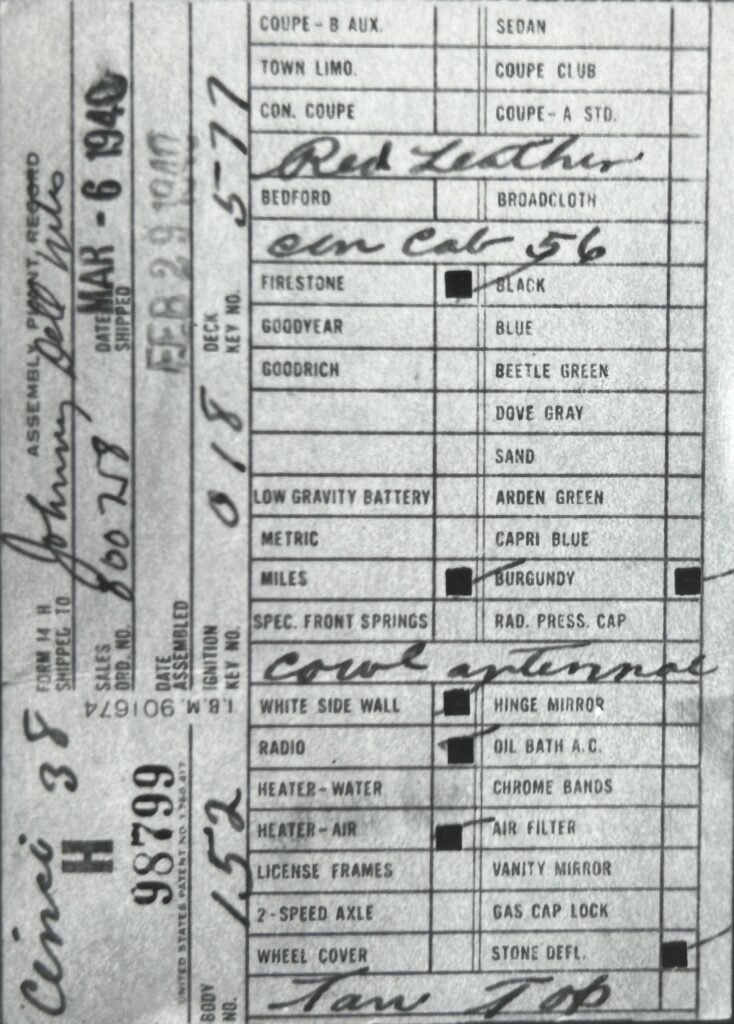 ASSEMBLY PLANT RECORD
FORM 14 H
SHIPPED TO Johnny Dell
SALES ORD. NO. 800258
DATE SHIPPED MAR - 6 1940
DATE ASSEMBLED FEB 29 1940
IGNITION KEY NO. 018
DECK KEY NO. 5-77
I.B.M. 901674
Cinci 38
H 98799
UNITED STATES PATENT NO. 1,780,417
BODY NO. 152
COUPE-B AUX. SEDAN
TOWN LIMO. COUPE CLUB
CON. COUPE COUPE-A STD.
Red Leather
BEDFORD BROADCLOTH
con Cab 56
FIRESTONE BLACK
GOODYEAR BLUE
GOODRICH BEETLE GREEN
DOVE GRAY
SAND
LOW GRAVITY BATTERY ARDEN GREEN
METRIC CAPRI BLUE
MILES BURGUNDY
SPEC. FRONT SPRINGS RAD. PRESS. CAP
cowl antennae
WHITE SIDE WALL HINGE MIRROR
RADIO OIL BATH A.C.
HEATER-WATER CHROME BANDS
HEATER-AIR AIR FILTER
LICENSE FRAMES VANITY MIRROR
2-SPEED AXLE GAS CAP LOCK
WHEEL COVER STONE DEFL.
Tan Top